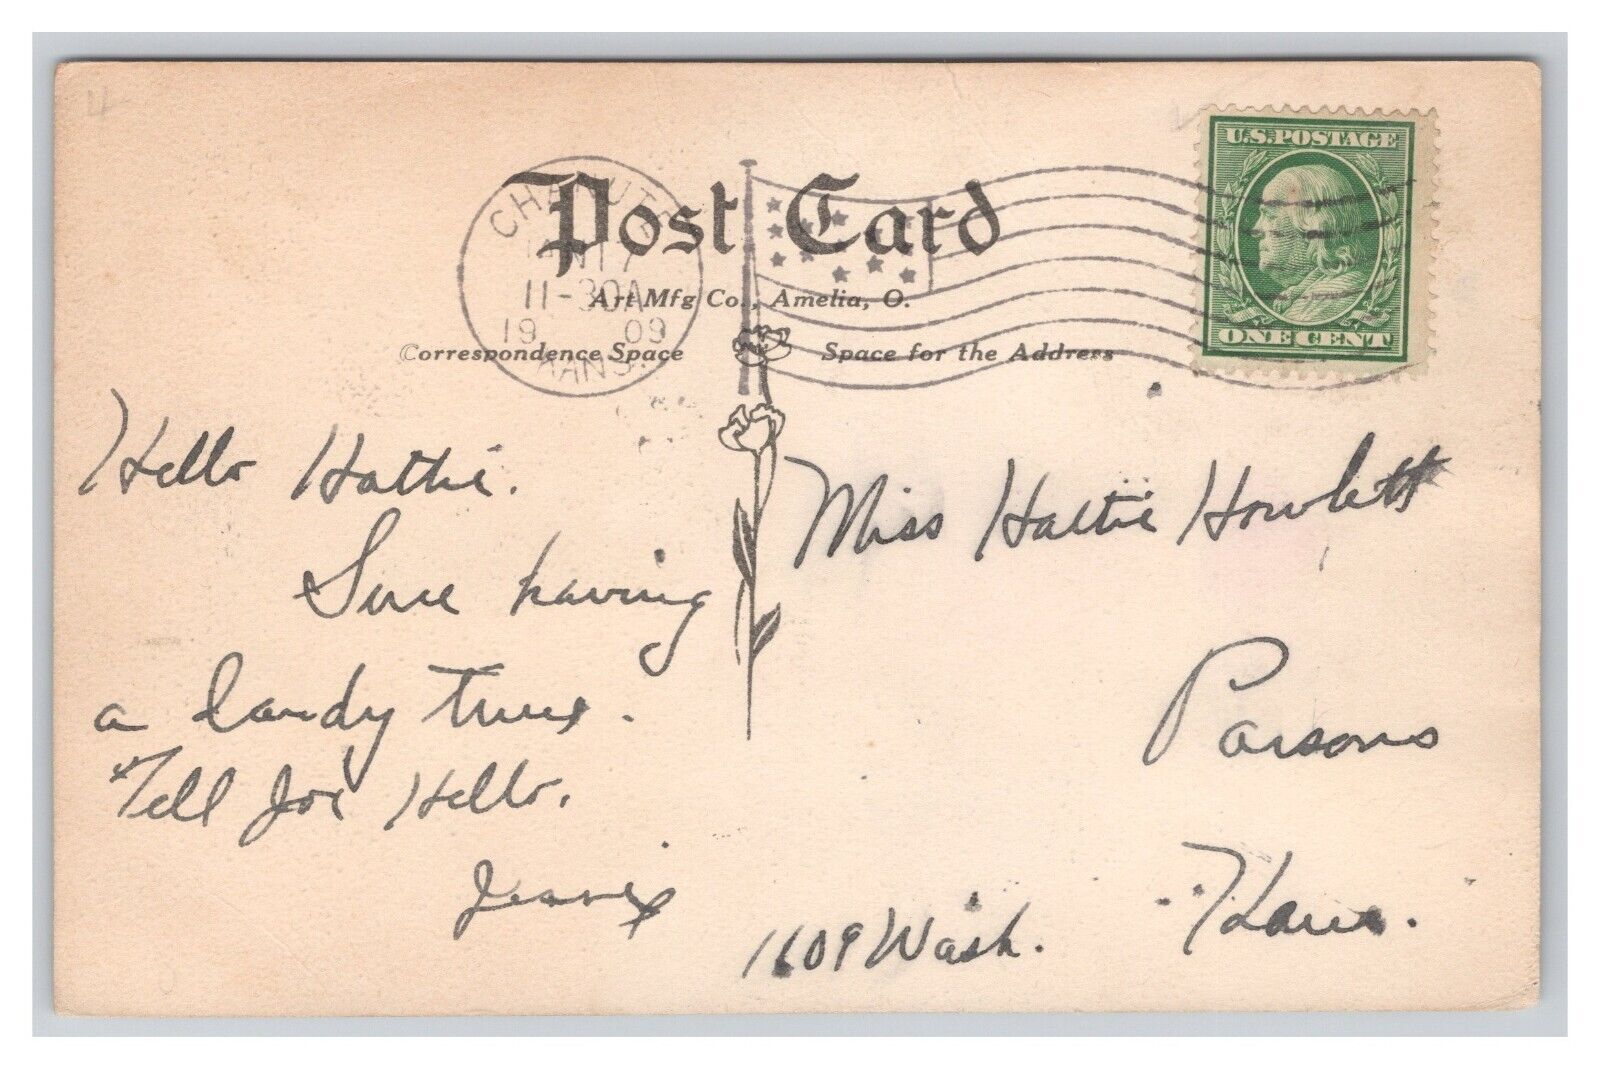 Post Card
Art Mfg Co., Amelia, O.
Correspondence Space
Space for the Address
CHANUTE
17
11-30A
19 09
KANS.
U.S. POSTAGE
ONE CENT
Hello Hattie.
Sure having
a dandy time.
Tell Joe Hello.
Jessie
Miss Hattie Howlett
Parsons
Kans.
1609 Wash.